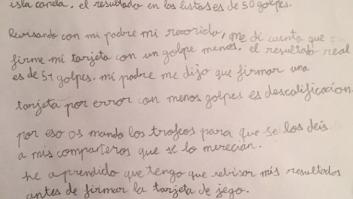 isla canela. el resultado en los listados es de 50 golpes.
Revisando con mi padre mi recorrido, me di cuenta que
firme mi tarjeta con un golpe menos. el resultado real
es de 51 golpes. mi padre me dijo que firmar una
tarjeta por error con menos golpes es descalificacion
por eso os mando los trofeos para que se los deis
a mis compañeros que se lo merecian.
he aprendido que tengo que revisar mis resultados
antes de firmar la tarjeta de jego.